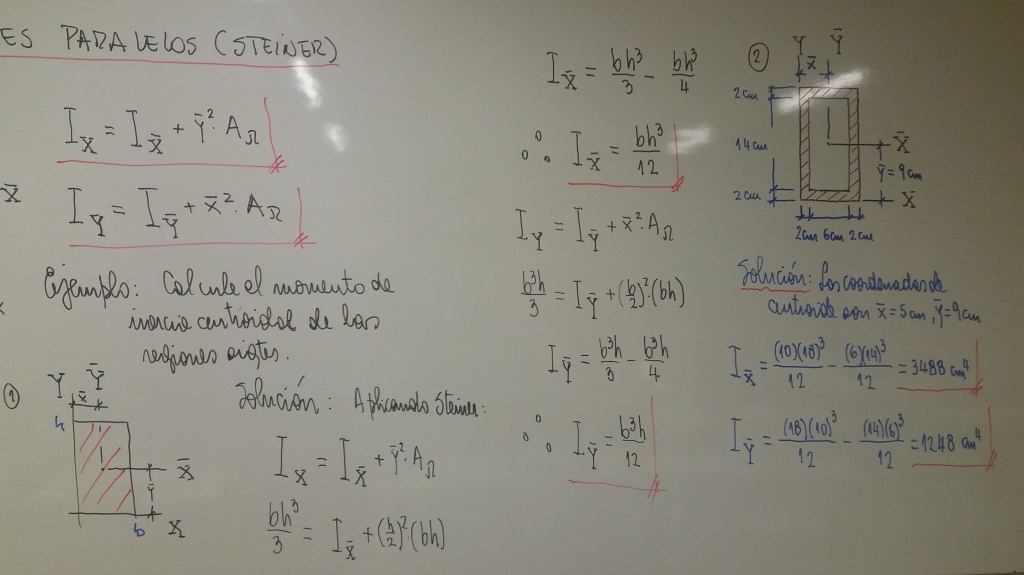 ES PARALELOS (STEINER)
I_X̄ = I_X̄ + Ȳ²·A_Ω
X̄
I_Y = I_Ȳ + x̄²·A_Ω
Ejemplo: Calcule el momento de
inercia centroidal de las
regiones sigtes.
①
Y Ȳ
x̄
h
X̄
Ȳ
X
b
Solución: Aplicando Steiner:
I_X = I_X̄ + Ȳ²·A_Ω
bh³/3 = I_X̄ + (h/2)²·(bh)
I_X̄ = bh³/3 - bh³/4
∴ I_X̄ = bh³/12
I_Y = I_Ȳ + x̄²·A_Ω
b³h/3 = I_Ȳ + (b/2)²·(bh)
I_Ȳ = b³h/3 - b³h/4
∴ I_Ȳ = b³h/12
②
Y Ȳ
x̄
2cm
14cm
2cm
X̄
Ȳ=9cm
X
2cm 6cm 2cm
Solución: Las coordenadas de
centroide son x̄=5cm, Ȳ=9cm
I_X̄ = (10)(18)³/12 - (6)(14)³/12 = 3488 cm⁴
I_Ȳ = (18)(10)³/12 - (14)(6)³/12 = 1248 cm⁴